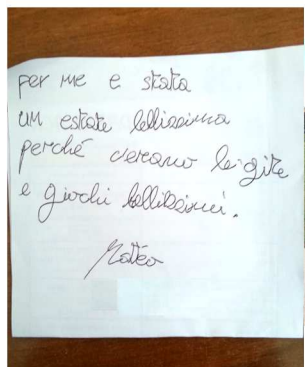 per me e stata
un estate bellissima
perché verano le gite
e giochi bellissimi.
Matteo